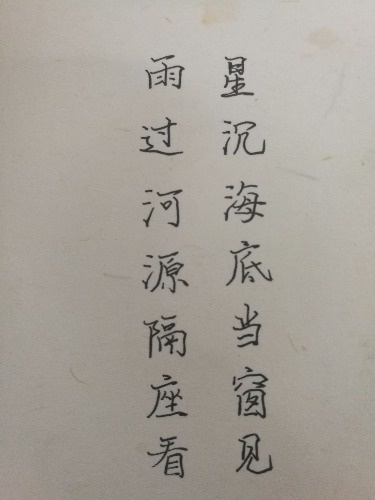 星沉海底当窗见
雨过河源隔座看